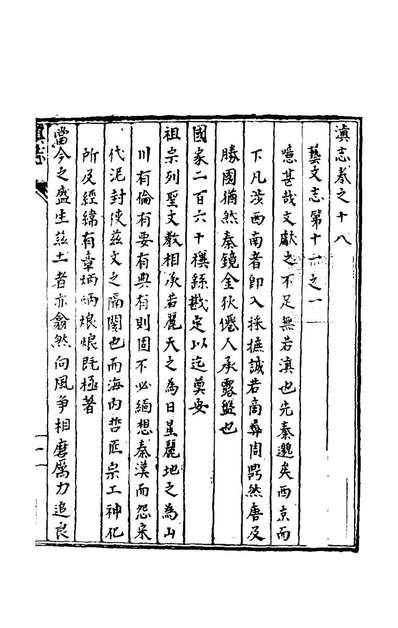 滇志卷之十八
藝文志第十一之一
噫甚哉文獻之不足無若滇也先秦邈矣西京而
下凡涉西南者即入採摭誠若商彝周鼎然唐及
勝國猶然秦鏡金狄僊人承露盤也
國家二百六十禩繇戡定以迄奠安
祖宗列聖文教相承若麗天之為日星麗地之為山
川有倫有要有典有則固不必緬想秦漢而怨宋
代泥封使茲文之隔閡也而海內哲匠宗工神化
所及經緯有章炳炳烺烺既極著
當今之盛生茲土者亦翕然向風爭相磨厲力追良
滇志